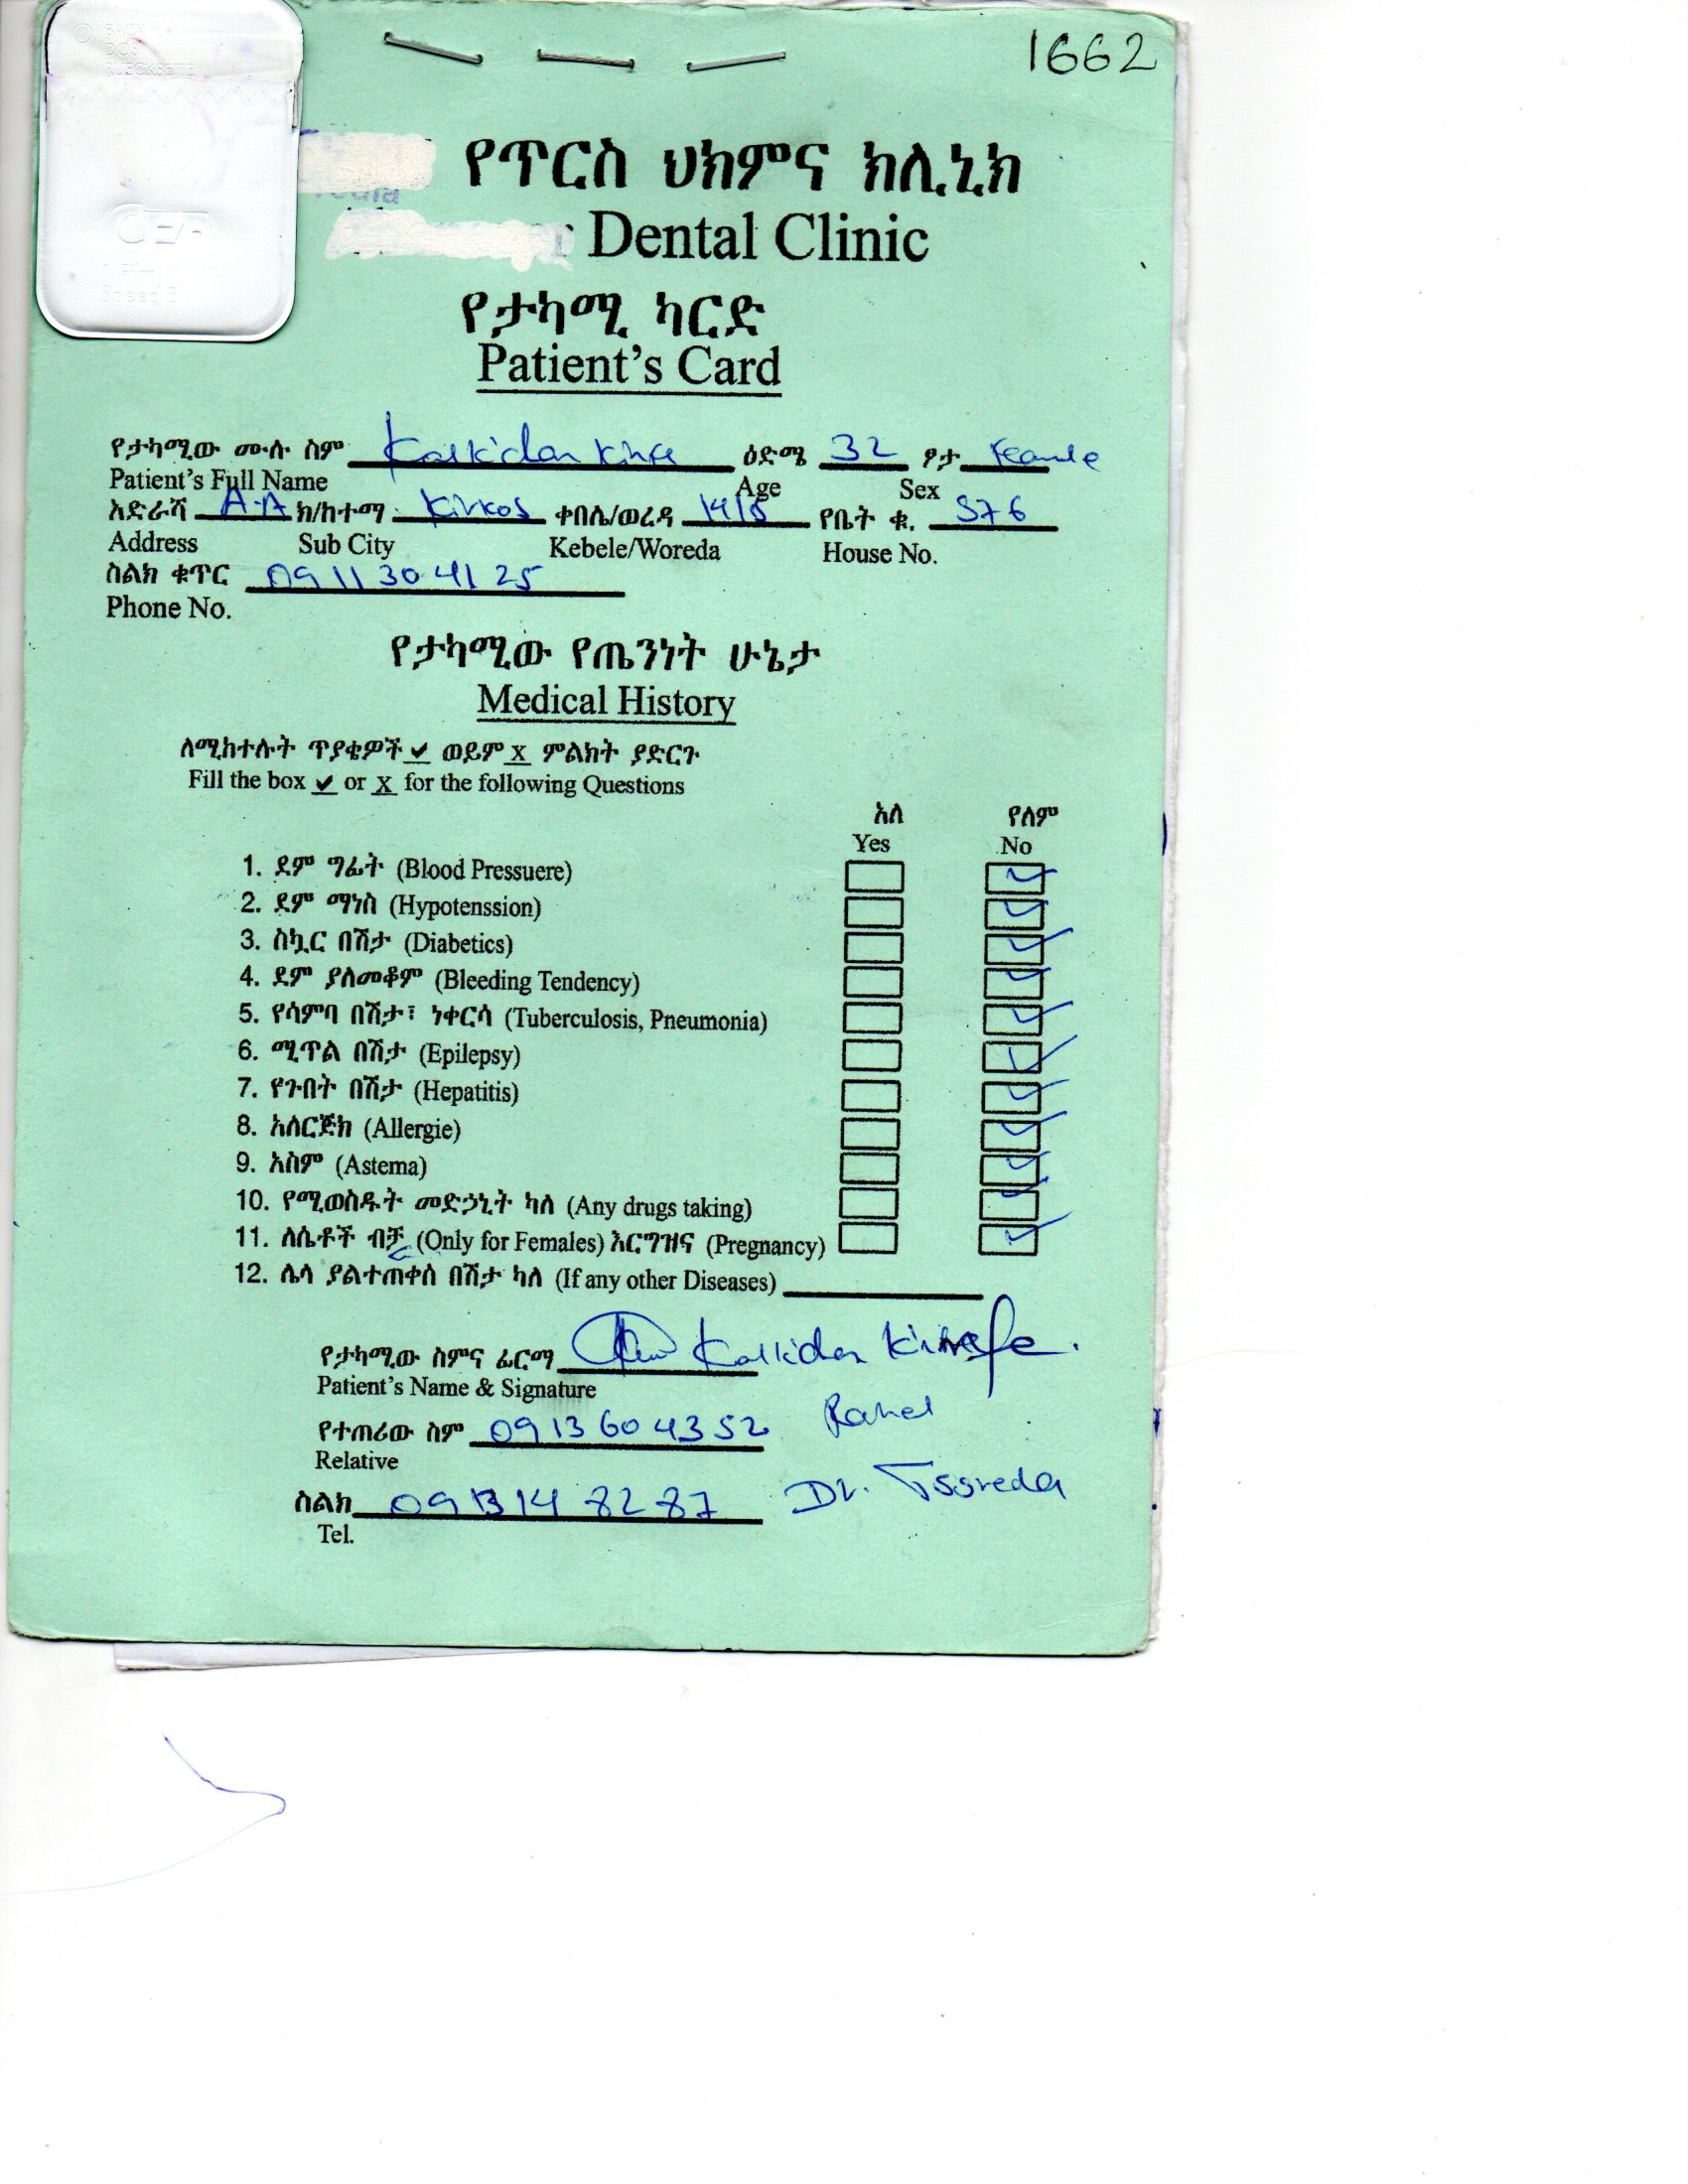 1662
BACK
DOS
RUECKSEITE
የጥርስ ህክምና ክሊኒክ
Dental Clinic
የታካሚ ካርድ
Patient's Card
የታካሚው ሙሉ ስም Kalkidan Kinfe ዕድሜ 32 ፆታ
Patient's Full Name Age Sex
አድራሻ A.A ክ/ከተማ Kirkos ቀበሌ/ወረዳ የቤት ቁ. 576
Address Sub City Kebele/Woreda House No.
ስልክ ቁጥር 0911304125
Phone No.
የታካሚው የጤንነት ሁኔታ
Medical History
ለሚከተሉት ጥያቄዎች ✓ ወይም x ምልክት ያድርጉ
Fill the box ✓ or x for the following Questions
አለ የለም
Yes No
1. ደም ግፊት (Blood Pressuere) ✓
2. ደም ማነስ (Hypotenssion) ✓
3. ስኳር በሽታ (Diabetics) ✓
4. ደም ያለመቆም (Bleeding Tendency) ✓
5. የሳምባ በሽታ፣ ነቀርሳ (Tuberculosis, Pneumonia) ✓
6. ሚጥል በሽታ (Epilepsy) ✓
7. የጉበት በሽታ (Hepatitis) ✓
8. አለርጅክ (Allergie) ✓
9. አስም (Astema) ✓
10. የሚወስዱት መድኃኒት ካለ (Any drugs taking) ✓
11. ለሴቶች ብቻ (Only for Females) እርግዝና (Pregnancy) ✓
12. ሌላ ያልተጠቀሰ በሽታ ካለ (If any other Diseases)
የታካሚው ስምና ፊርማ Kalkidan Kinfe.
Patient's Name & Signature
የተጠሪው ስም 0913604352 Rahel
Relative
ስልክ 0913148287 Dr. Tsgreda
Tel.